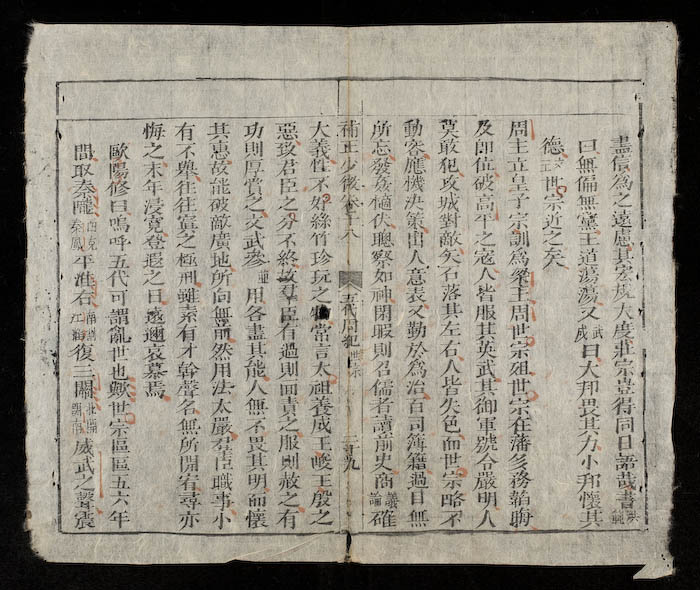 盡信爲之遠慮其宏規大度莊宗豈得同日語哉書洪範
曰無偏無黨王道蕩蕩又武成曰大邦畏其力小邦懷其
德云世宗近之矣
周主立皇子宗訓爲梁王周世宗殂世宗在藩多務韜晦
及卽位破高平之寇人皆服其英武其御軍號令嚴明人
莫敢犯攻城對敵矢石落其左右人皆失色而世宗略不
動容應機決策出人意表又勤於爲治百司簿籍過目無
所忘發姦擿伏聰察如神閑暇則召儒者讀前史商議論確
補正少微卷十八 五代周紀世宗 三十九
大義性不好絲竹珍玩之物常言太祖養成王峻王殷之
惡致君臣之分不終故羣臣有過則面責之服則赦之有
功則厚賞之文武參並用各盡其能人無不畏其明而懷
其惠故能破敵廣地所向無前然用法太嚴羣臣職事小
有不舉往往寘之極刑雖素有才幹聲名無所開宥尋亦
悔之末年浸寬登遐之日遠邇哀慕焉
歐陽修曰嗚呼五代可謂亂世也歟世宗區區五六年
間取秦隴西克秦鳳平淮右南割江淮復三關北關威武之聲震